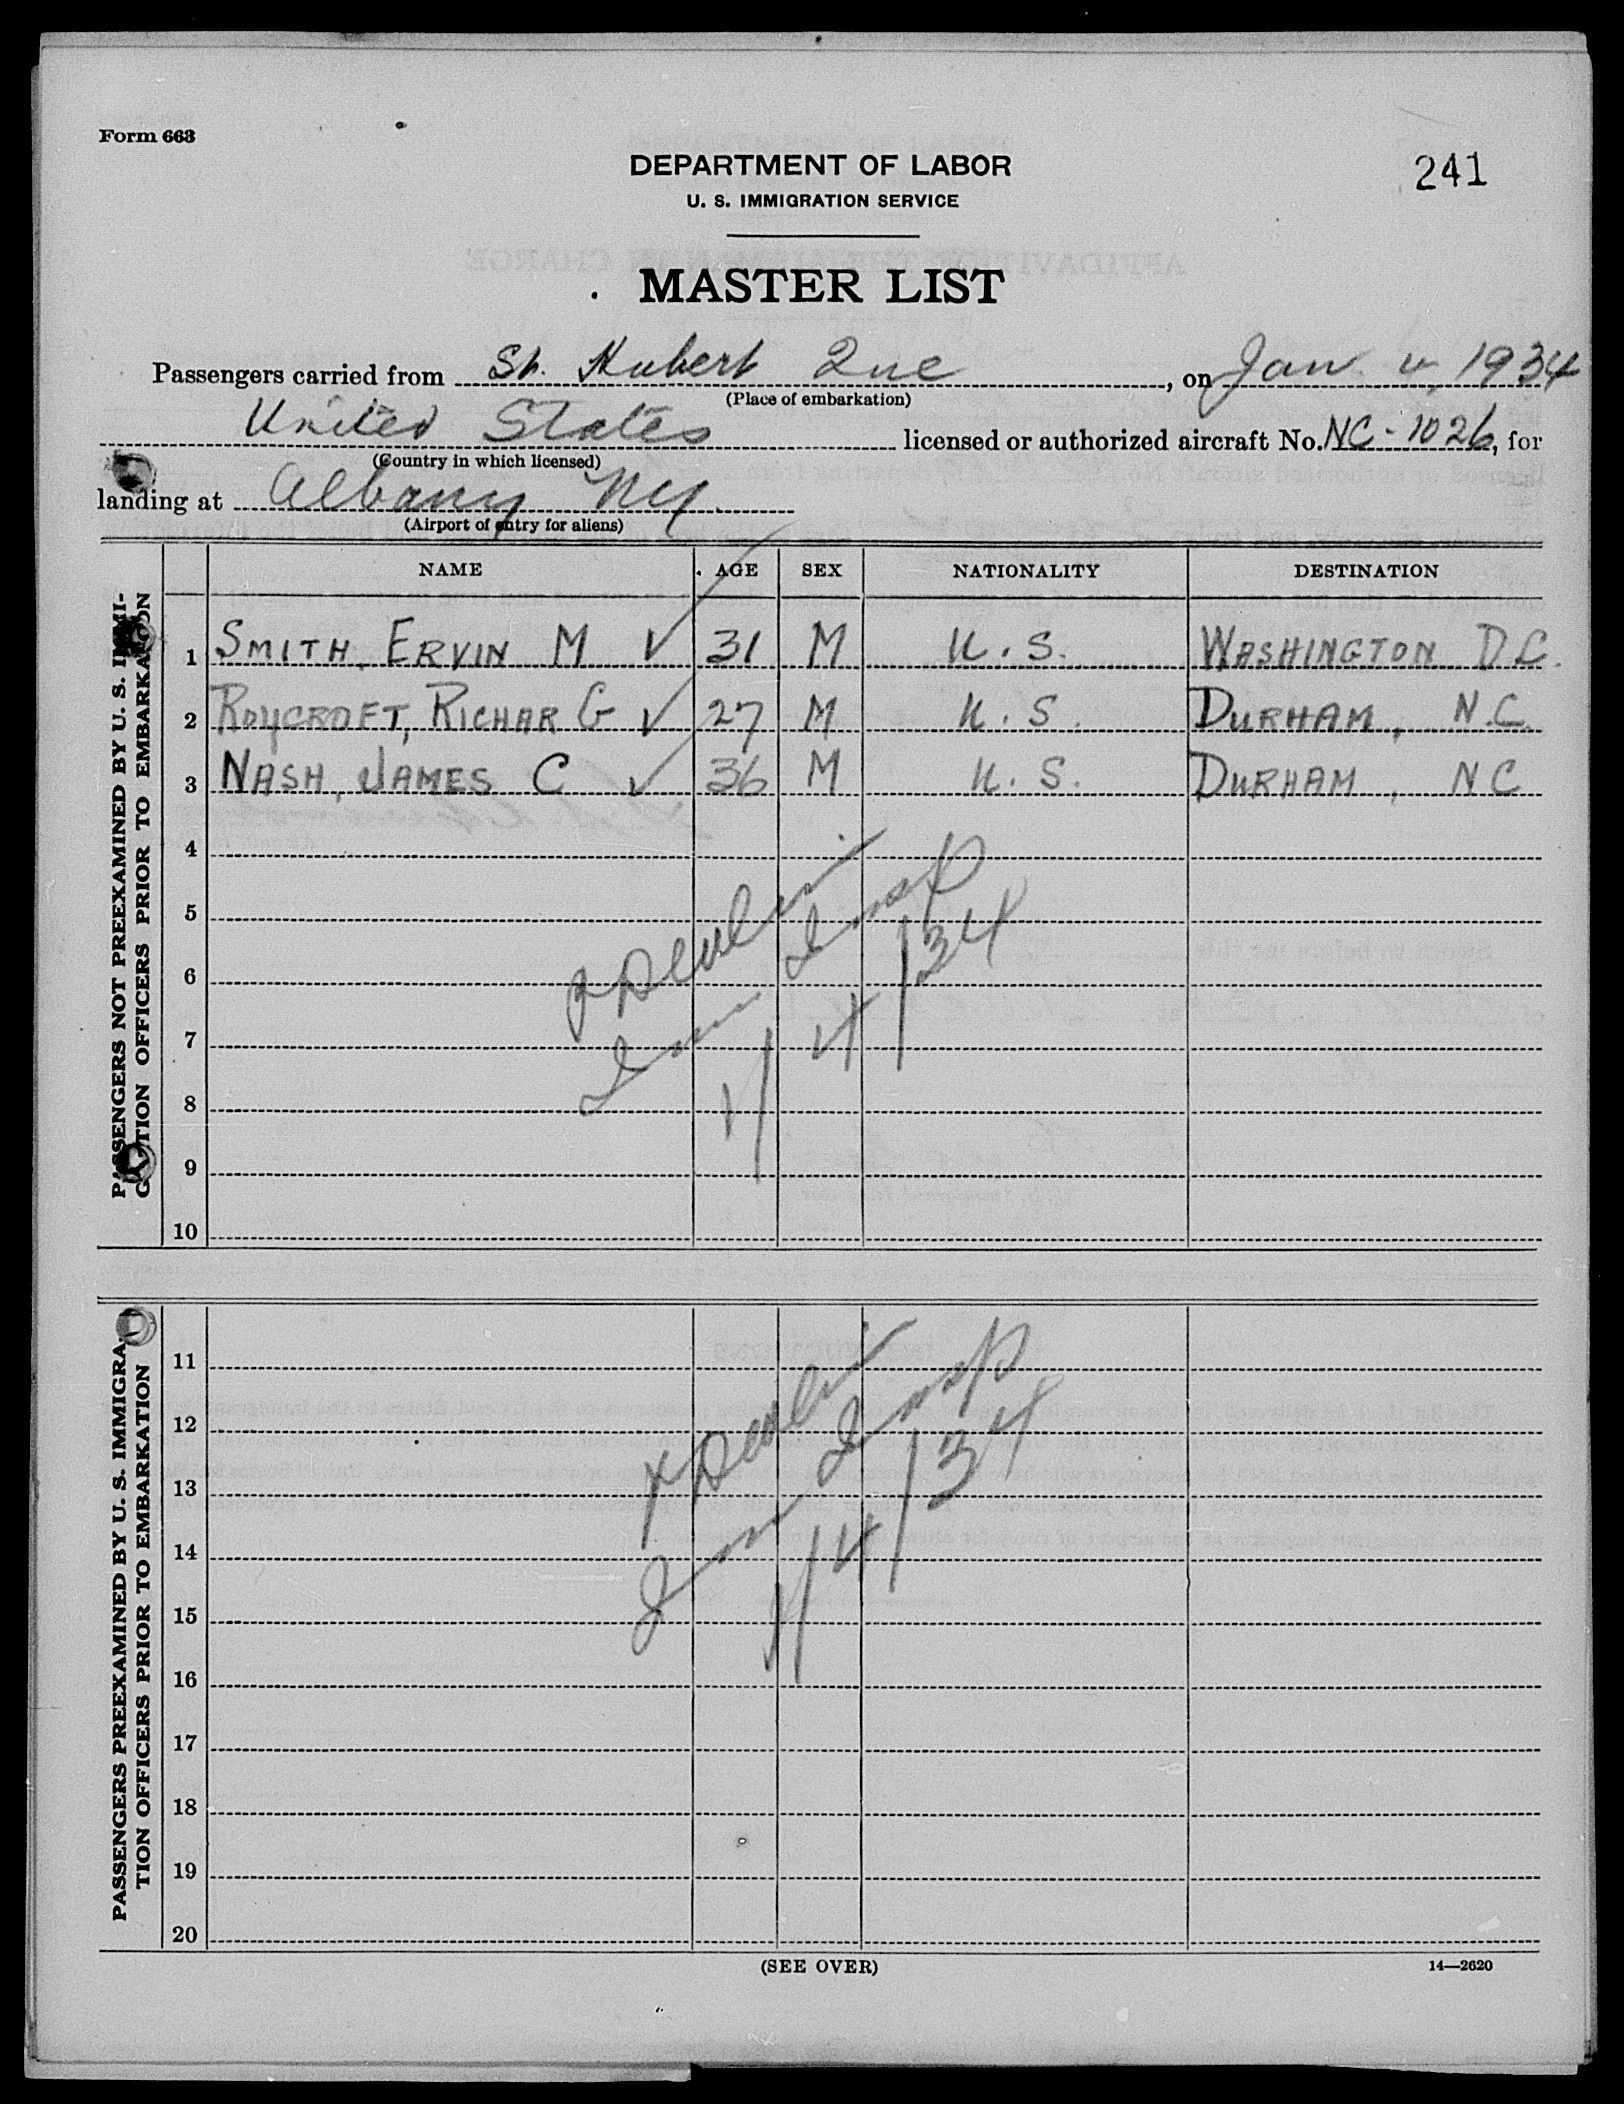 Form 663
DEPARTMENT OF LABOR
241
U. S. IMMIGRATION SERVICE
MASTER LIST
Passengers carried from St. Hubert Que, on Jan 4, 1934
(Place of embarkation)
United States licensed or authorized aircraft No. NC-1026, for
(Country in which licensed)
landing at Albany NY.
(Airport of entry for aliens)
NAME AGE SEX NATIONALITY DESTINATION
PASSENGERS NOT PREEXAMINED BY U. S. IMMI-
GRATION OFFICERS PRIOR TO EMBARKATION
1 SMITH, ERVIN M ✓ 31 M U. S. WASHINGTON D.C.
2 ROYCROFT, RICHAR G ✓ 27 M U. S. DURHAM, N.C.
3 NASH, JAMES C ✓ 36 M U. S. DURHAM, NC
4
5
6
7
8
9
10
Imm Insp
1/4/34
PASSENGERS PREEXAMINED BY U. S. IMMIGRA-
TION OFFICERS PRIOR TO EMBARKATION
11
12
13
14
15
16
17
18
19
20
Imm Insp
1/4/34
(SEE OVER)
14—2620